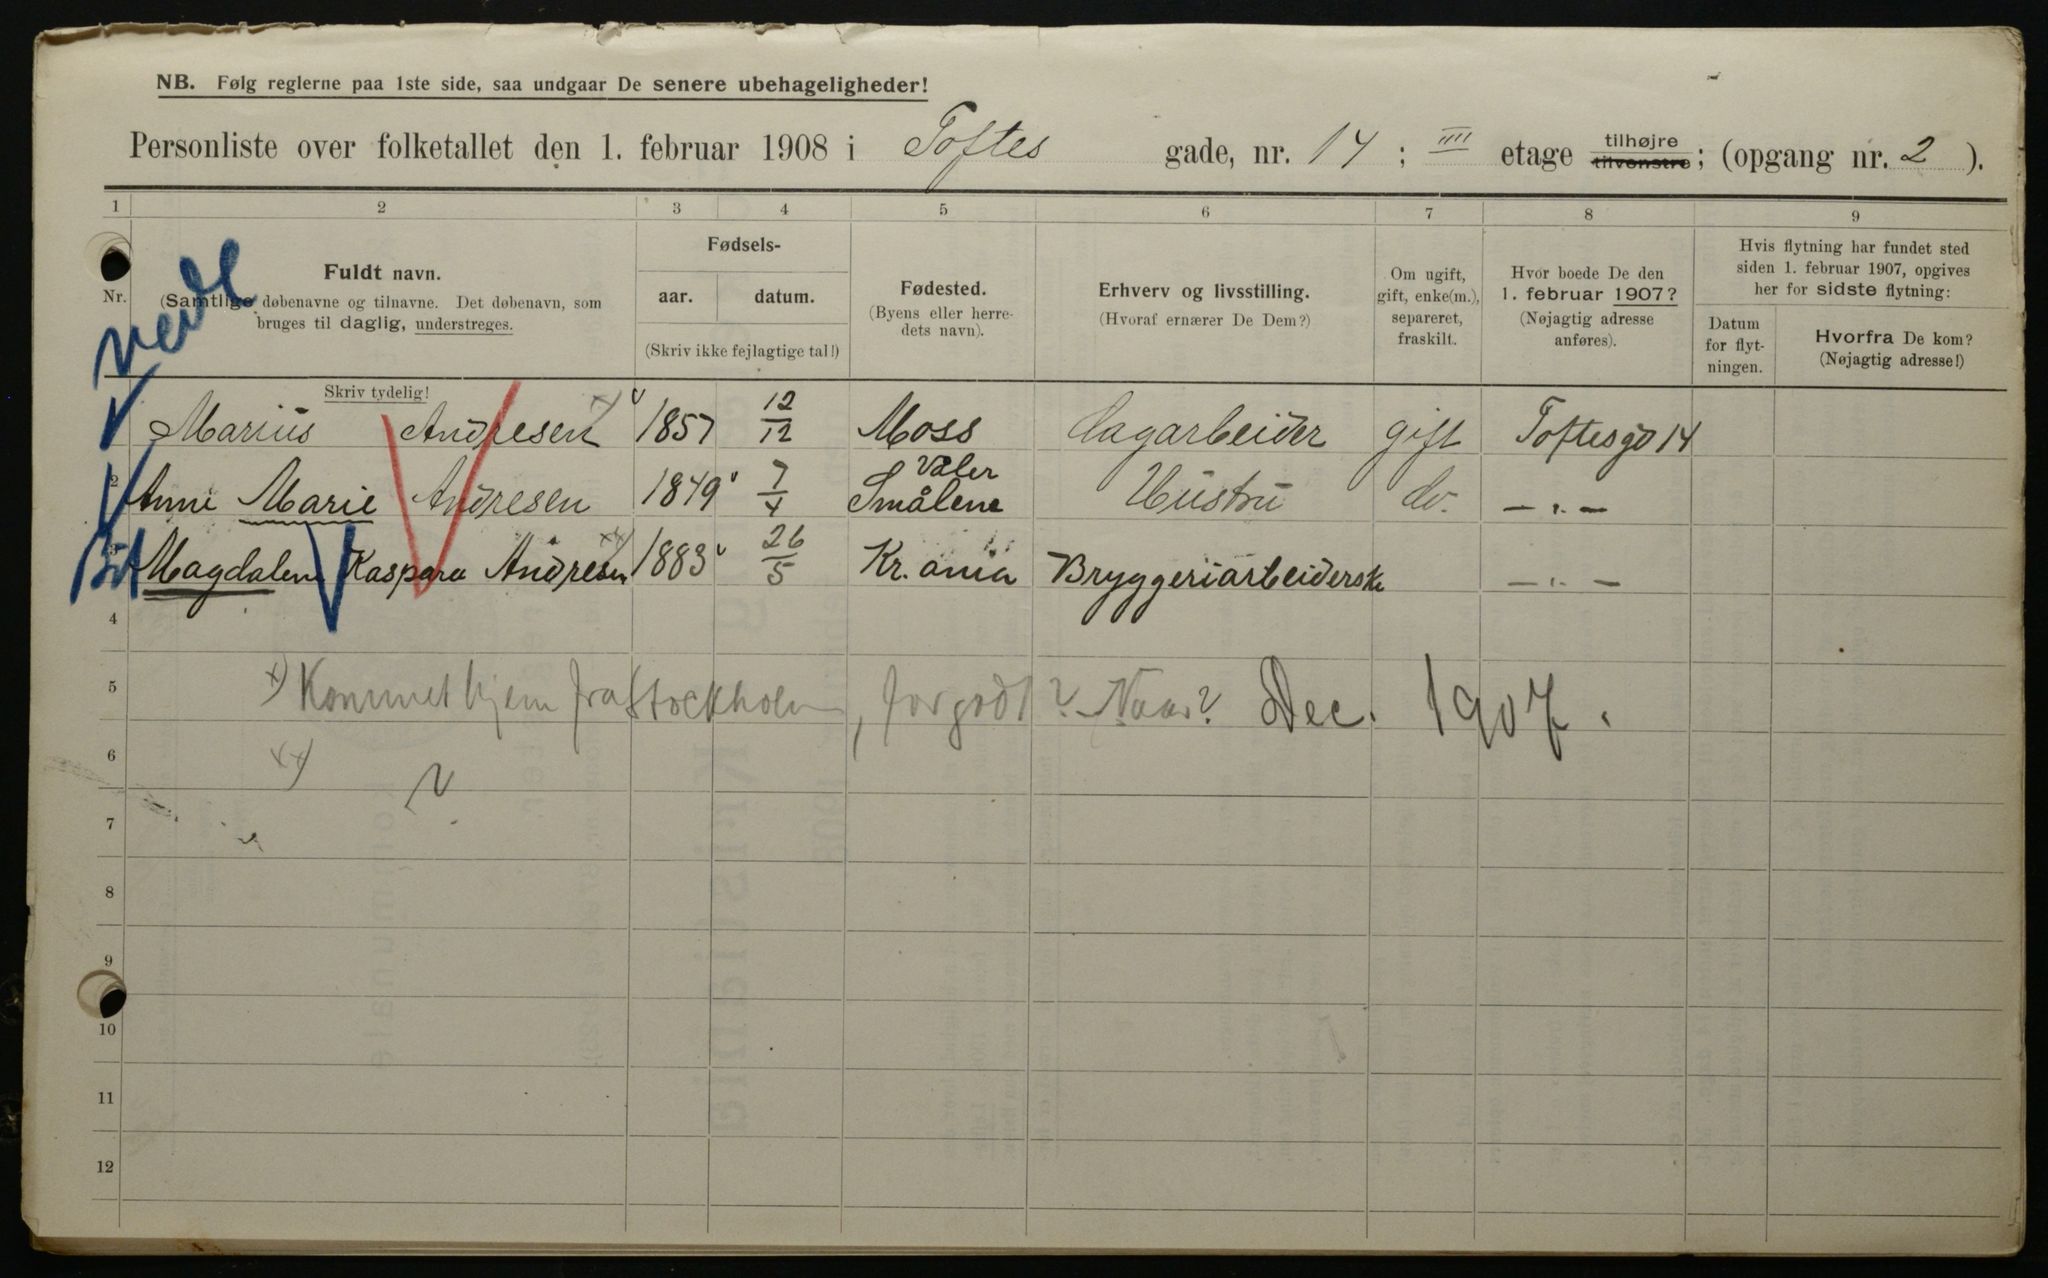 NB. Følg reglerne paa 1ste side, saa undgaar De senere ubehageligheder!
Personliste over folketallet den 1. februar 1908 i Toftes gade, nr. 14; IIII etage tilhøjre tilvenstre; (opgang nr. 2).
1 2 3 4 5 6 7 8 9
Nr.
Fuldt navn.
(Samtlige døbenavne og tilnavne. Det døbenavn, som
bruges til daglig, understreges.
Skriv tydelig!
Fødsels-
aar. datum.
(Skriv ikke fejlagtige tal!)
Fødested.
(Byens eller herre-
dets navn).
Erhverv og livsstilling.
(Hvoraf ernærer De Dem?)
Om ugift,
gift, enke(m.),
separeret,
fraskilt.
Hvor boede De den
1. februar 1907?
(Nøjagtig adresse
anføres).
Hvis flytning har fundet sted
siden 1. februar 1907, opgives
her for sidste flytning:
Datum
for flyt-
ningen.
Hvorfra De kom?
(Nøjagtig adresse!)
Marius Andresen x) 1857 12/12 Moss Dagarbeider gift Toftesgd 14
2 Anne Marie Andresen 1849 7/4 Våler Smålene Hustru do. — " —
3 Magdalene Kaspara Andresen xx) 1883 26/5 Kr.ania Bryggeriarbeiderske — " —
4
5 x) Kommet hjem fra Stockholm, for godt? Naar? Dec. 1907.
6 xx)
7
8
9
10
11
12